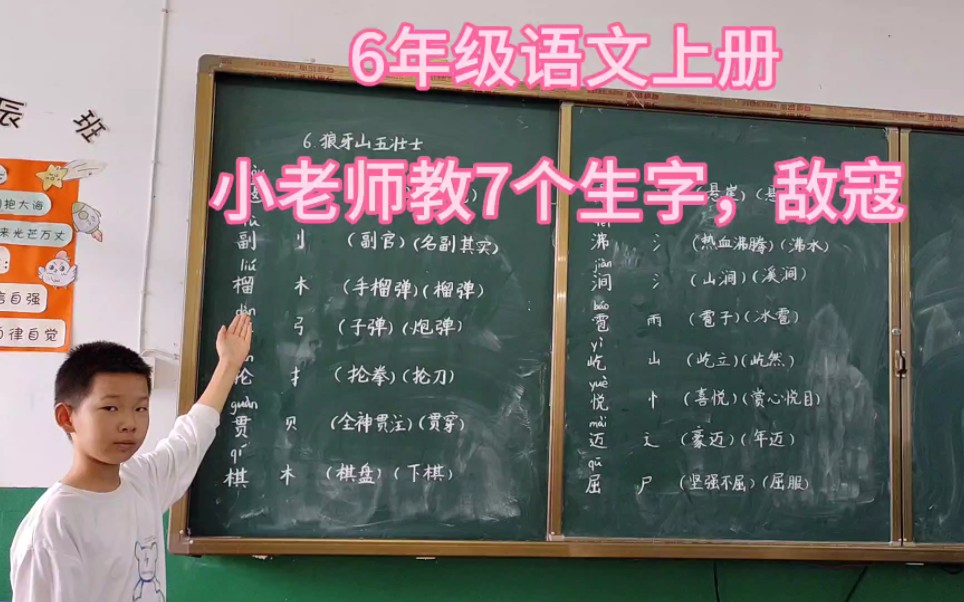 6年级语文上册
小老师教7个生字，敌寇
辰 班
艳大海
来光芒万丈
言自强
自律自觉
6.狼牙山五壮士
副 刂 (副官)(名副其实)
liú
榴 木 (手榴弹)(榴弹)
dàn
弓 (子弹)(炮弹)
抡 扌 (抡拳)(抡刀)
guàn
贯 贝 (全神贯注)(贯穿)
qí
棋 木 (棋盘)(下棋)
(悬崖)(悬
沸 氵 (热血沸腾)(沸水)
jiàn
涧 氵 (山涧)(溪涧)
báo
雹 雨 (雹子)(冰雹)
yì
屹 山 (屹立)(屹然)
yuè
悦 忄 (喜悦)(赏心悦目)
mài
迈 辶 (豪迈)(年迈)
qū
屈 尸 (坚强不屈)(屈服)